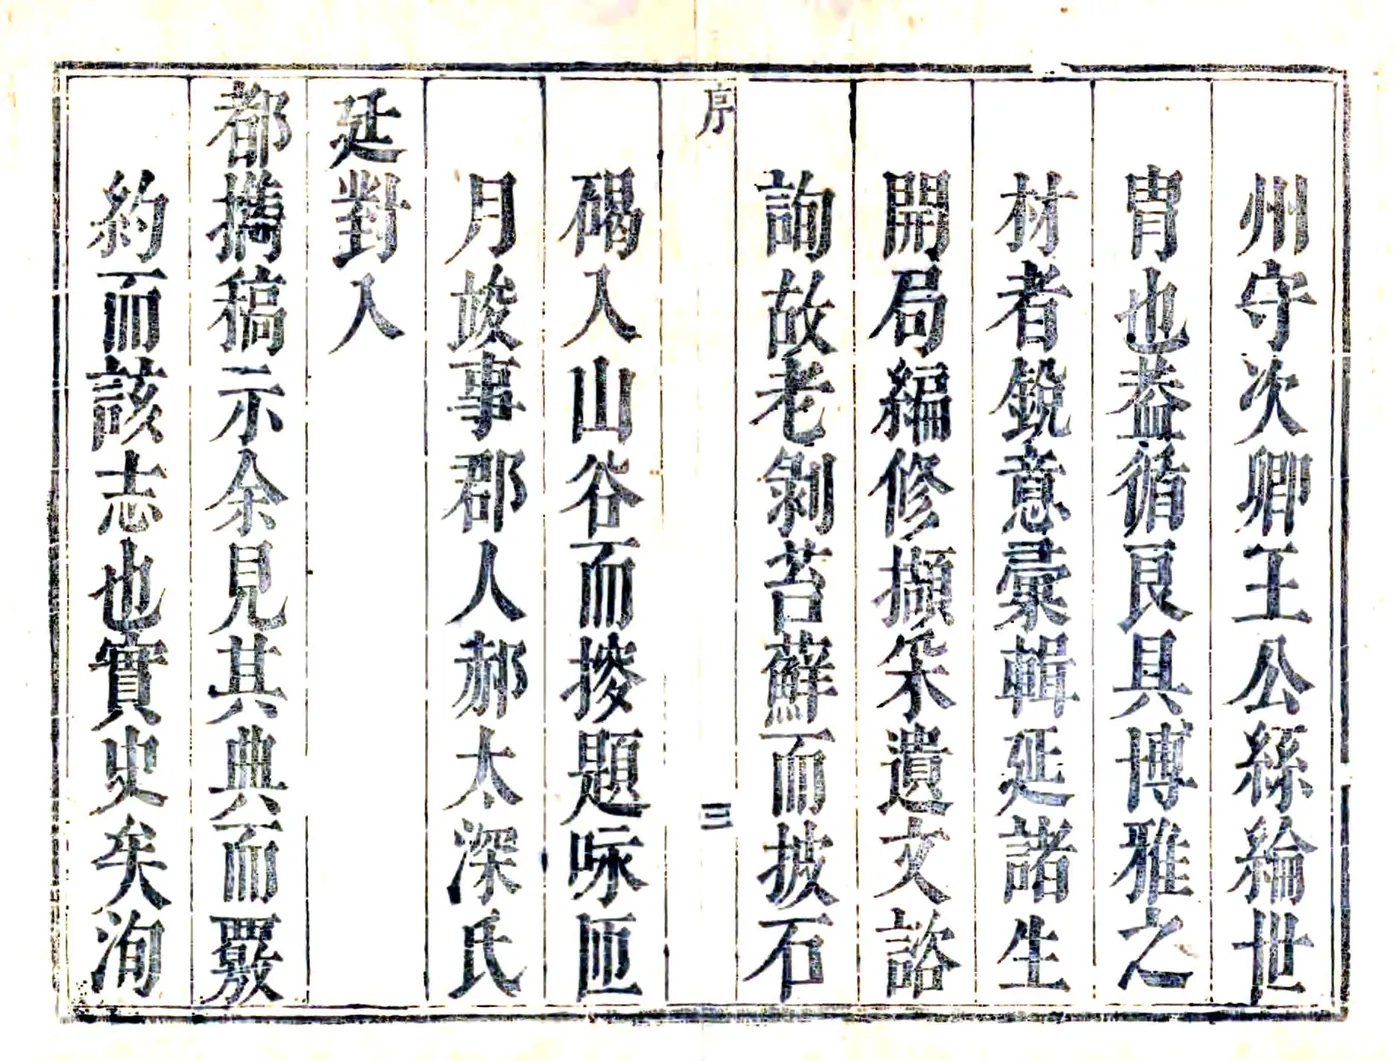 州守次卿王公絲綸世
冑也葢循良具博雅之
材者銳意彙輯延諸生
開局編修擷采遺文諮
詢故老剝苔蘚而披石
序
三
碣入山谷而㨛題咏匝
月竣事郡人郝太深氏
廷對入
都攜稿示余見其典而覈
約而該志也實史矣洵